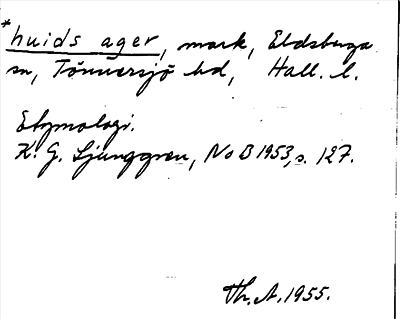 *huids ager, mark, Eldsberga
sn, Tönnersjö hd, Hall. l.
Etymologi.
K. G. Ljunggren, NoB 1953, s. 127.
Th. A. 1955.